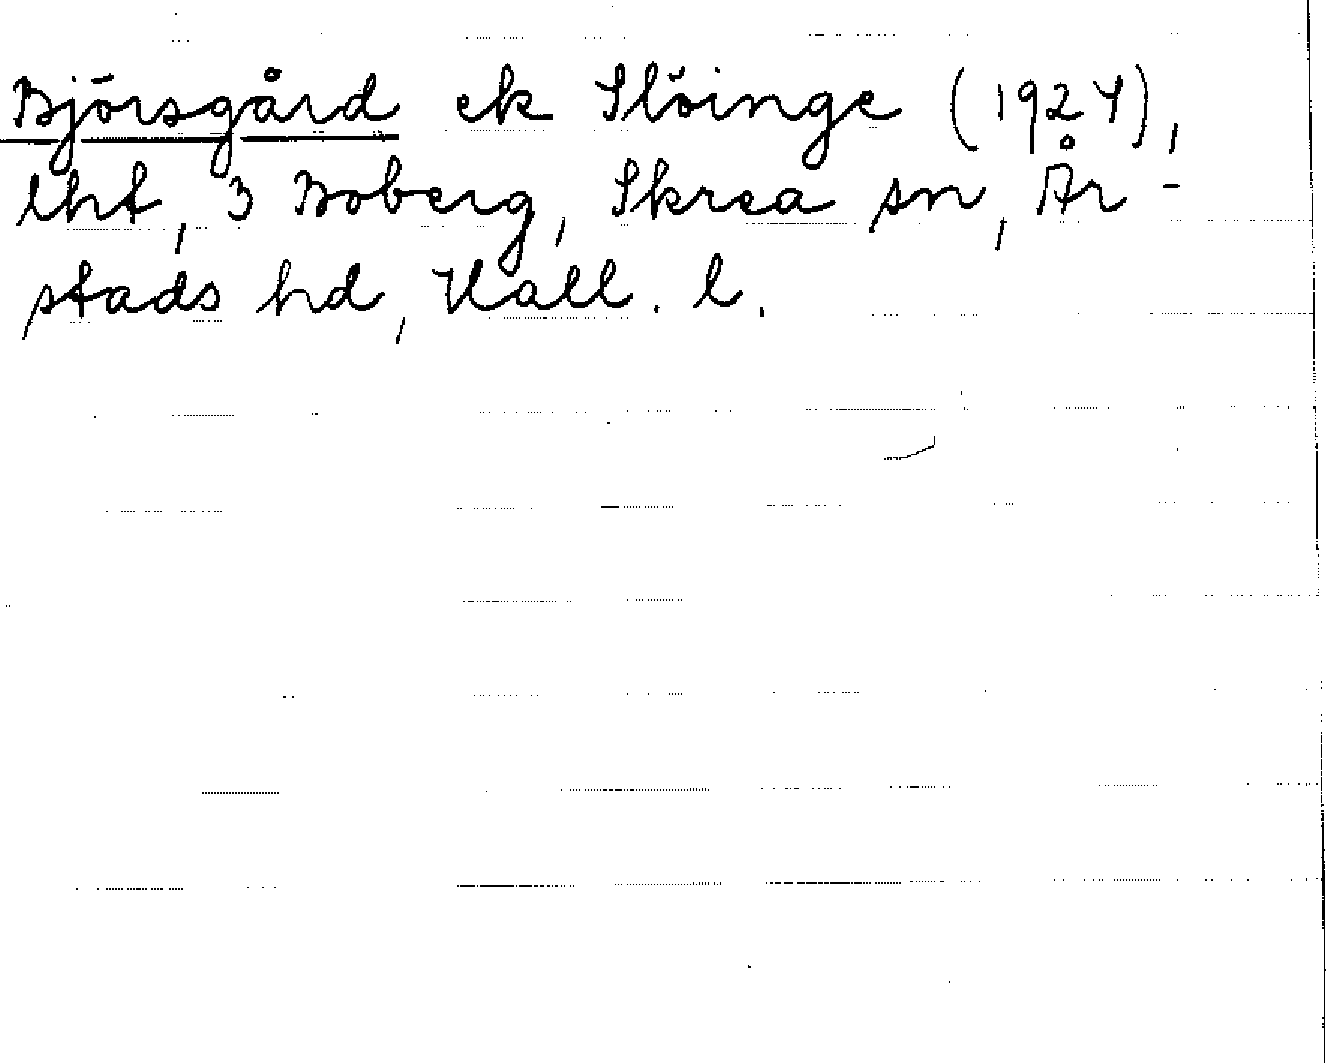 Björsgård ek Slöinge (1924),
lht, 3 Boberg, Skrea sn, År-
stads hd, Hall. l.